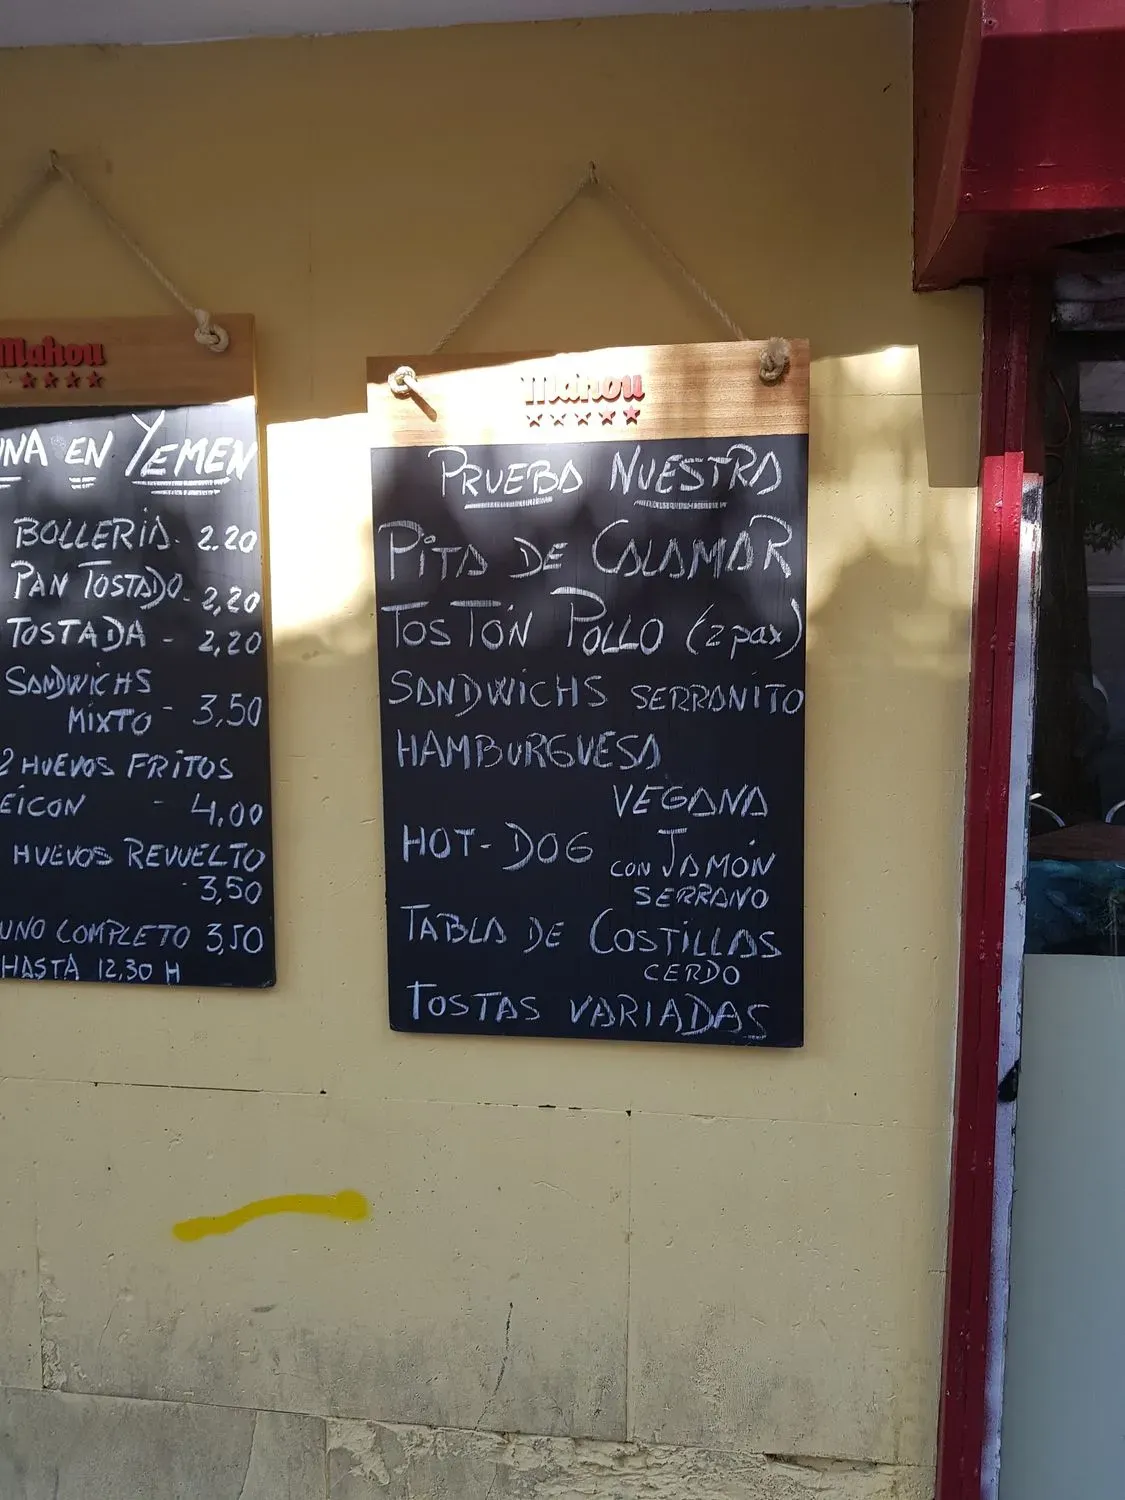 Mahou
UNA EN YEMEN
BOLLERIA - 2.20
PAN TOSTADO - 2,20
TOSTADA - 2,20
SANDWICHS
MIXTO - 3,50
2 HUEVOS FRITOS
EICON - 4,00
HUEVOS REVUELTO
- 3,50
UNO COMPLETO 3,50
HASTA 12,30 H
Mahou
PRUEBA NUESTRA
PITA DE CALAMAR
TOSTÓN POLLO (2 pax)
SANDWICHS SERRANITO
HAMBURGUESA
VEGANA
HOT-DOG CON JAMÓN
SERRANO
TABLA DE COSTILLAS
CERDO
TOSTAS VARIADAS